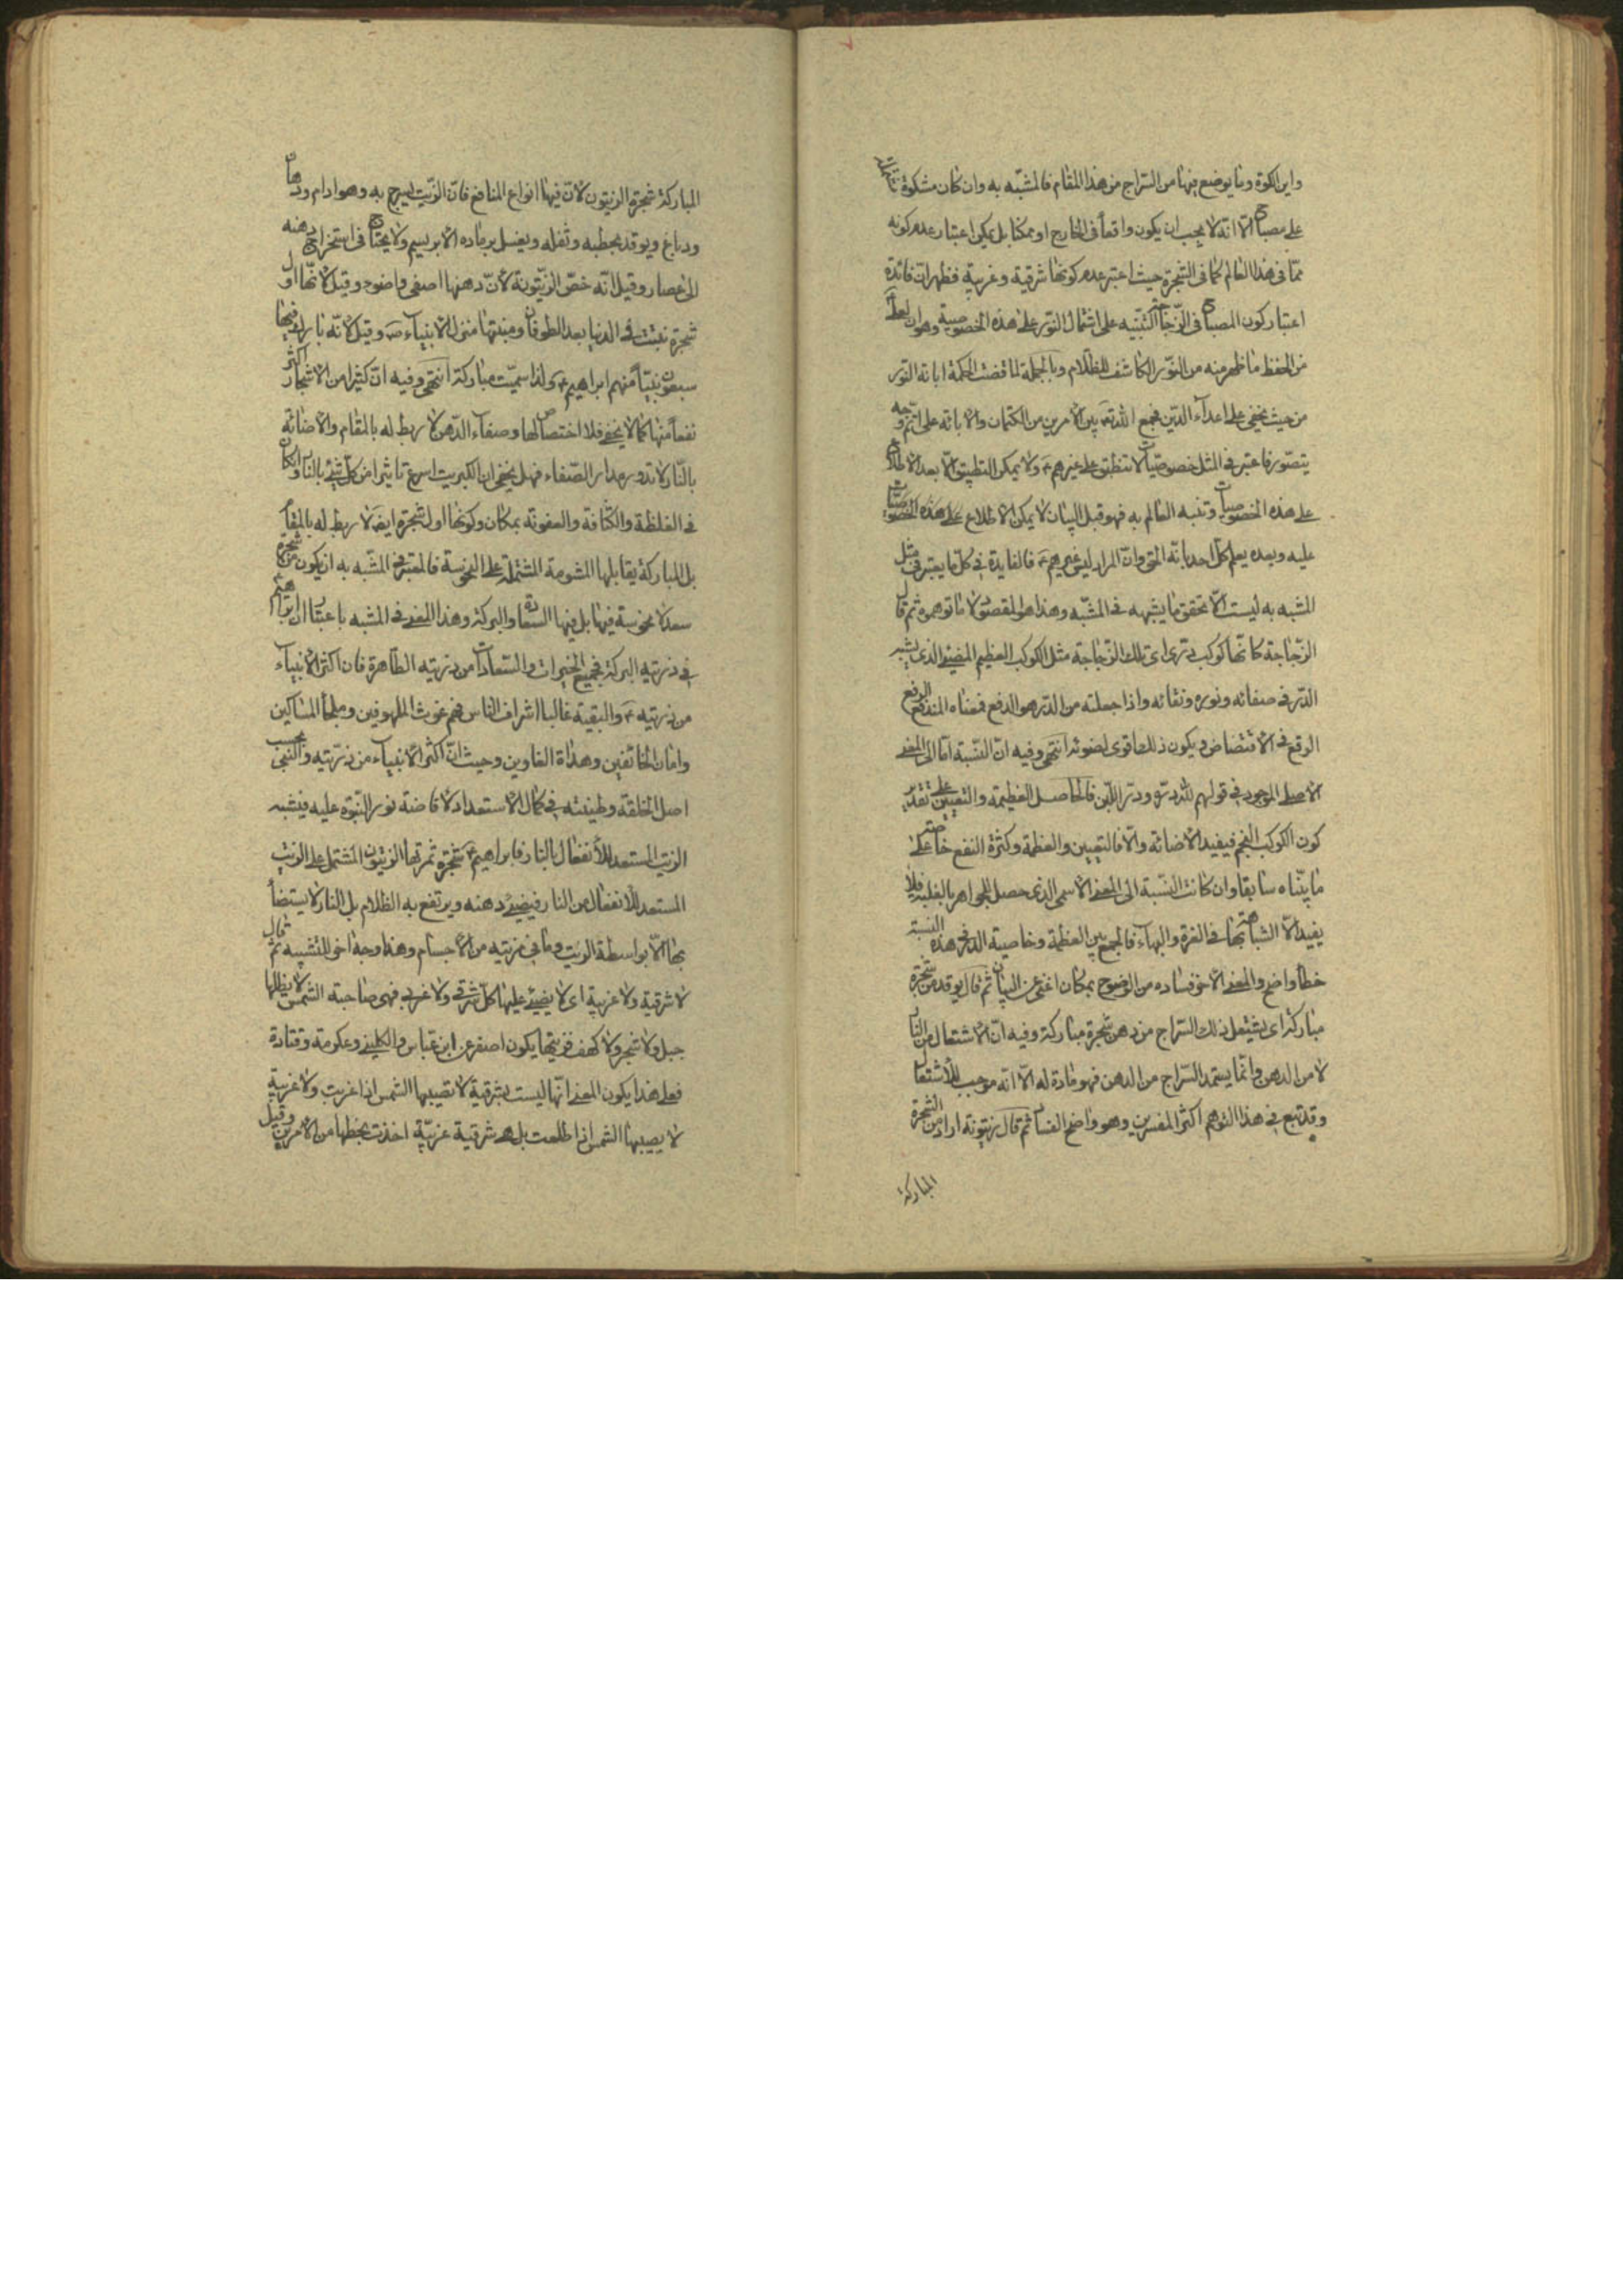 واين الكوة وما يوضع فيها من السراج من هذا المقام فالمشبّه به وان كان مشكوة
على مصباح الّا انّه لا يجب ان يكون واقعاً فى الخارج او ممكنا بل يمكن اعتبار عدم كونه
ممّا فى هذا العالم كما فى الشجرة حيث اعتبر عدم كونها شرقية وغربية فظهر انّ فائدة
اعتبار كون المصباح فى الزجاجة التنبيه على اشتمال النّور على هذه الخصوصية وهو ان
من الحفظ ما ظهر منه من النّور الكاشف للظّلام وبالجملة لمّا قضت الحكمة ابانة النّور
من حيث يخفى على اعداء الدّين فجمع اللّه تعالى بين الأمرين من الكتمان والابانة على اتمّ وجه
يتصوّر فاعتبر فى المثل خصوصيّات لا تنطبق على غيرهم ع ولا يمكن التطبيق الّا بعد الاطلاع
على هذه الخصوصيات وتنبه العالم به فهو قبل البيان لا يمكن الاطلاع على هذه الخصوصيّات
عليه وبعده يعلم كلّ احد بانّه الحق وانّ المراد ليس غيرهم ع فالفايدة فى كلّ ما يعتبر فى مثل
المشبه به ليست الّا تحقق ما يشبهه فى المشبّه وهذا هو المقصود لا ما توهموه ثم قال
الزّجاجة كانّها كوكب درّى اى تلك الزّجاجة مثل الكوكب العظيم المضىء الذى يشبه
الدّر فى صفائه ونوره ونقائه واذا جعلته من الدّرء هو الدفع فمعناه المندفع
الوقع فى الانقضاض ويكون ذلك اقوى لضوئه انتهى وفيه انّ النّسبة امّا الى المعنى
الأصلى الموجود فى قولهم للّه درّه ودرّ اللّبن فالحاصل العظيمة والتعيين على تقدير
كون الكوكب النجم فيفيد الأضائة والّا فالتعيين والعظمة وكثرة النفع خاصّة على
ما بيّناه سابقا وان كانت النّسبة الى المعنى الاسمى الذى حصل للجواهر بالغلبة فلا
يفيد الّا الشباهة بها فى الغرة والبهاء فالجمع بين العظمة وخاصية الدر فى هذه النسبة
خطأ واضح والمعنى الآخر فساده من الوضوح بمكان اغنى عن البيان ثم قال يوقد من شجرة
مباركة اى يشتعل ذلك السّراج من دهن شجرة مباركة وفيه انّ الاشتعال من النار
لا من الدهن وانّما يستمد السّراج من الدهن فهو مادة له الّا انّه موجب للأشتعال
وقد تبع فى هذا التوهم اكثر المفسرين وهو واضح الفساد ثم قال زيتونة اراد من الشجرة
المباركة
المباركة شجرة الزيتون لأنّ فيها انواع المنافع فانّ الزّيت يسرج به وهو ادام ودهان
ودباغ ويوقد بحطبه وثفله ويغسل برماده الابريسم ولا يحتاج فى استخراج دهنه
الى عصار وقيل انّه خصّ الزيّتونة لأنّ دهنها اصفى واضوء وقيل لأنّها اوّل
شجرة نبتت فى الدنيا بعد الطوفان ومنبتها منزل الأنبياء ص وقيل لأنّه بارك فيها
سبعون نبيّاً منهم ابراهيم ع ولذا سميّت مباركة انتهى وفيه انّ كثيرا من الأشجار اكثر
نفعاً منها كما لا يخفى فلا اختصاص لها وصفاء الدّهن لا ربط له بالمقام والاضائة
بالنّار لا تدور مدار الصّفاء فهل يخفى ان الكبريت اسرع تاثيرا من كلّ شىء بالنار وان كان
فى الغلظة والكثافة والعفونة بمكان وكونها اول شجرة ايضا لا ربط له بالمقام
بل المباركة يقابلها المشومة المشتملة على النحوسة فالمعتبر فى المشّبه به ان يكون من شجرة
سعد لا نحوسة فيها بل فيها السعادة والبركة وهذا المعنى فى المشبه باعتبار ان ابراهيم
فى ذريته البركة فجميع الخيرات والسّعادات من ذريته الطّاهرة فان اكثر الأنبياء
من ذريته ع والبقية غالبا اشراف الناس فهم غوث الملهوفين وملجأ المساكين
وامان الخائفين وهداة الغاوين وحيث انّ اكثر الأنبياء من ذرّيته والنّبى بحسب
اصل الخلقة وطينته فى كمال الاستعداد لافاضة نور النّبوّة عليه فيشبه
الزيت المستعد للأنفعال بالنار فابراهيم ع شجرة ثمرتها الزيتون المشتمل على الزيت
المستعد للأنفعال من النار فيضىء دهنه ويرتفع به الظلام بل النار لا يستضاء
بها الّا بواسطة الزيت وما فى مزيته من الأجسام وهذا وجه اخر للتشبيه ثم قال
لا شرقية ولا غربية اى لا يضىء عليها كلّ شرقى ولا غربى فهى ضاحية الشمس لا يظلها
جبل ولا شجر ولا كهف فزيتها يكون اصفر عن ابن عباس والكلبى وعكرمة وقتادة
فعلى هذا يكون المعنى انّها ليست بشرقية لا تصيبها الشمس اذا غربت ولا غربية
لا يصيبها الشمس اذا طلعت بل هى شرقية غربيّة اخذت بحظها من الأمرين وقيل